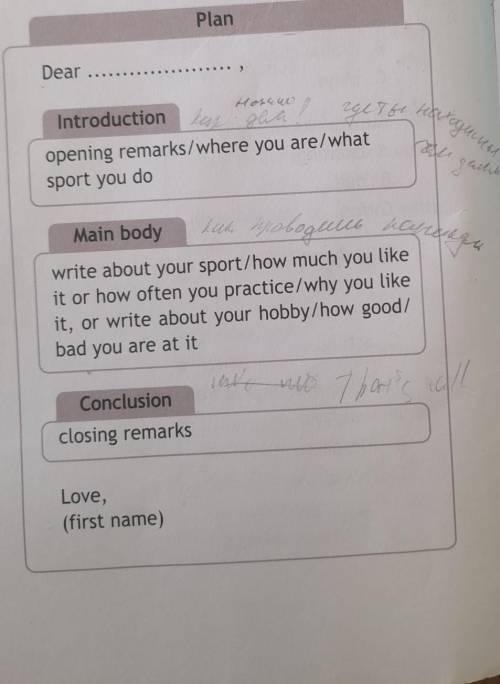 Plan
Dear ...................... ,
Introduction
как дела! где ты находишься
opening remarks/where you are/what
sport you do
Main body
как проводишь
write about your sport/how much you like
it or how often you practice/why you like
it, or write about your hobby/how good/
bad you are at it
That's all
Conclusion
closing remarks
Love,
(first name)